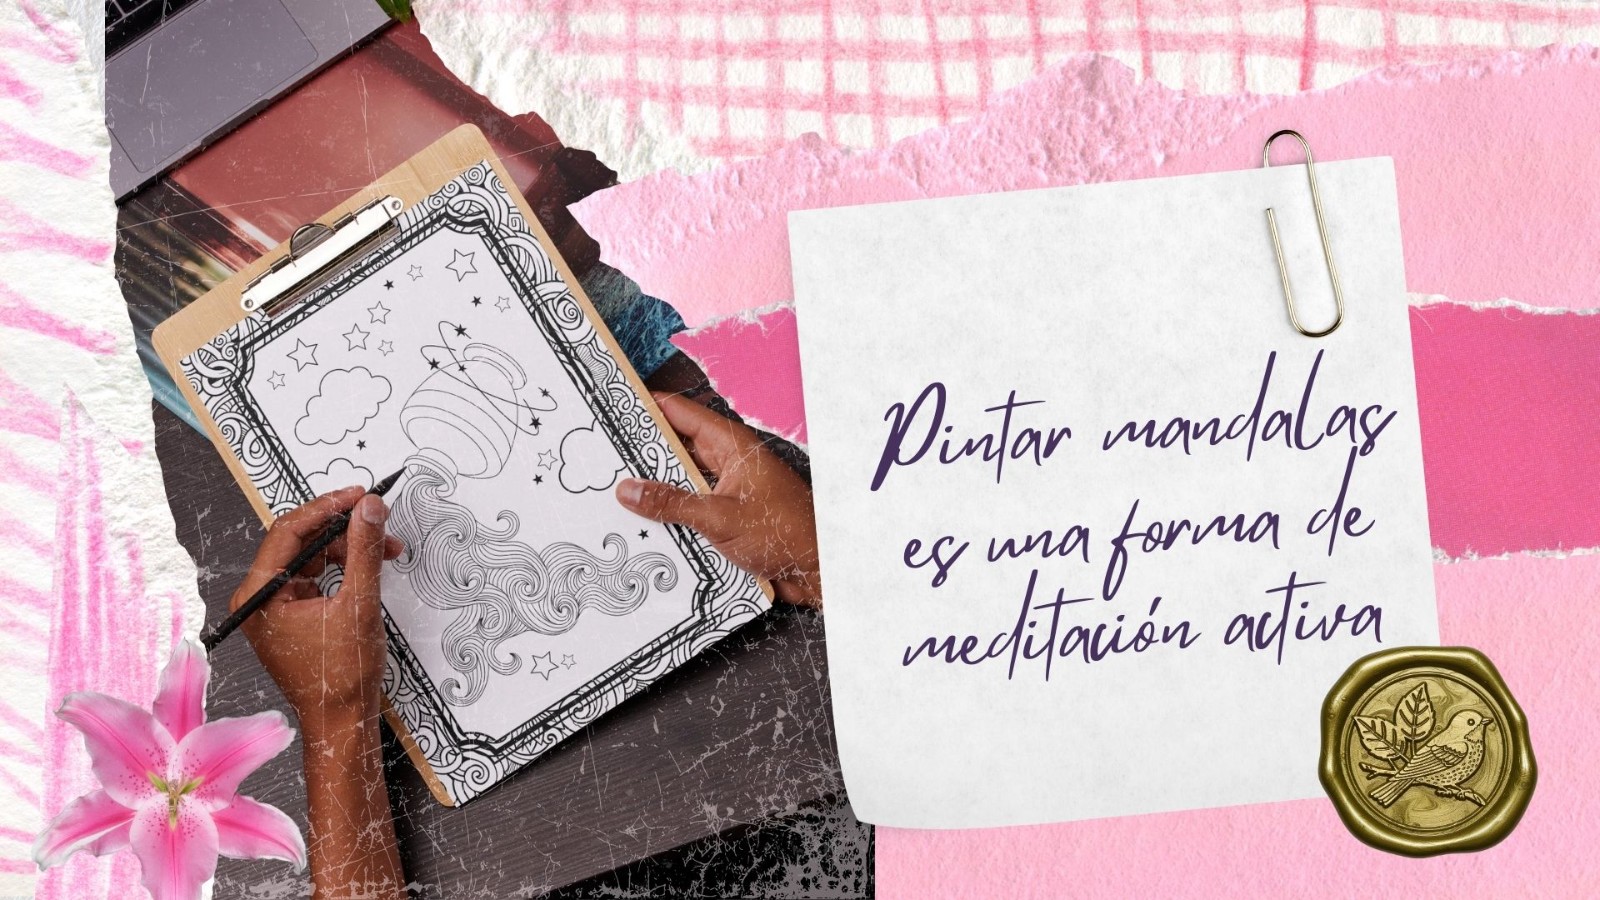 Pintar mandalas
es una forma de
meditación activa